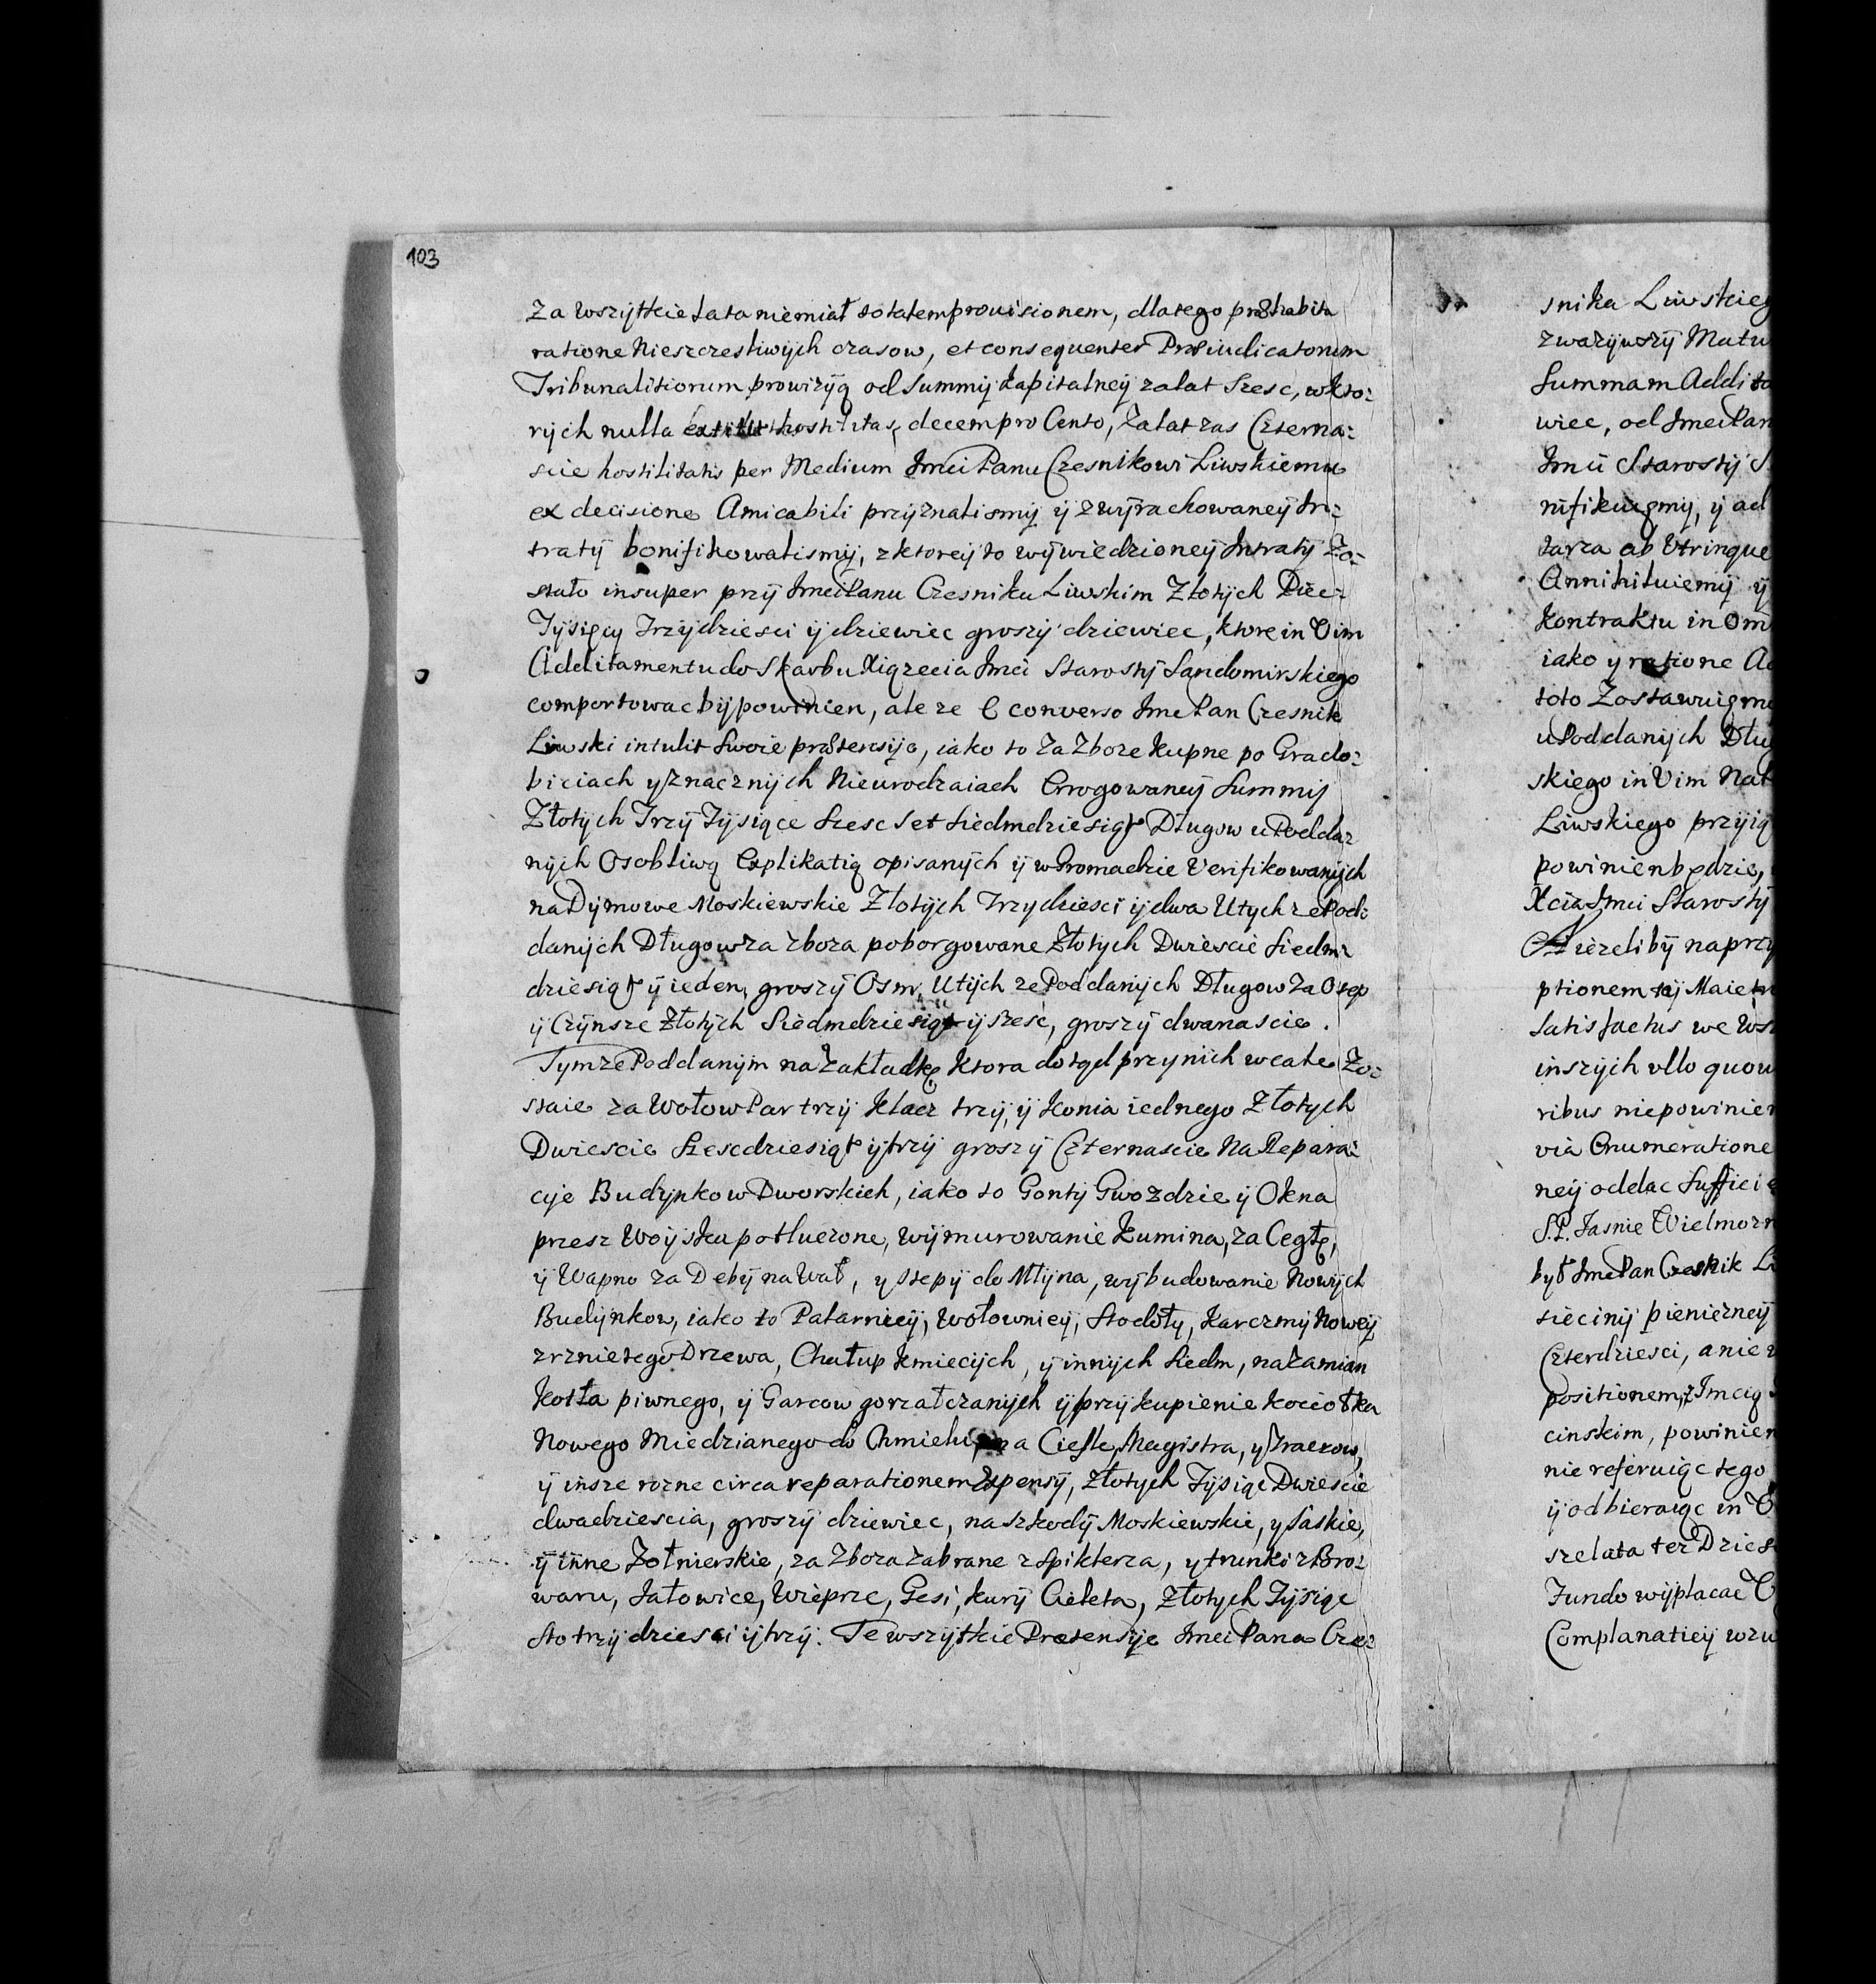 103
Za wszytkie lata niemiał totalem prouisionem, dlatego præhabita
ratione Nieszczesliwych czasow, et consequenter Præiudicatorum
Tribunalitiorum prowizyą od Summy Kapitalney zalat Szesc, w kto:
rych nulla extitit hostilitas, decem pro Cento, Zalat zas Czterna:
scie hostilitatis per Medium Jmci Panu Czesnikowi Liwskiemu
ex decisione Amicabili przyznalismy y z wyrachowaney In:
traty bonifikowalismy, z ktorey to wywiedzioney Intraty Zo:
stało insuper przy Jmci Panu Czesniku Liwskim Złotych Piec:
Tysięcy Trzydziesci y dziewiec groszy dziewiec, ktore in Vim
Additamentu do Skarbu Xiązecia Jmci Starosty Sandomirskiego
comportowac by powinien, ale ze E converso Jmc Pan Czesnik
Liwski intulit Swoie prætensije, iako to Za Zboze Kupne po Grado:
biciach y znacznych Nieurodzaiach Errogowaney Summy
Złotych Trzy Tysiące Szesc Set Siedmdziesiąt Długow u Podda:
nych Osobliwą Explikatią opisanych y w Gromadzie Verifikowanych
na Dymowe Moskiewskie Złotych Trzydziesci y dwa Utych ze Pod:
danych Długow za zboza poborgowane Złotych Dwiescie Siedm:
dziesiąt y ieden, groszy Osm, Utych ze Poddanych Długow Za Osep
y Czynsze Złotych Siedmdziesiąt y szesc, groszy dwanascie.
Tymze Poddanym na Zakładkę Ktora dotąd przynich wcale Zo:
staie za Wołow Par trzy Klacz trzy, y Konia iednego Złotych
Dwiescie Szescdziesiąt y trzy groszy Czternascie Na Repara:
cyje Budynkow Dworskich, iako to Gonty Gwozdzie y Okna
przesz Woyska potłuczone, wymurowanie Kumina, za Cegłę,
y Wapno za Deby na Wał, y Stepy do Młyna, wybudowanie Nowych
Budynkow, iako to Palarniey, Wołowniey, Stodoły, Karczmy Nowey
zrznietego Drzewa, Chałup Kmiecych, y innych Siedm, na Zamian
Kotła piwnego, y Garcow gorzałczanych y przykupienie Kociołka
Nowego Miedzianego do Chmielu, na Ciesle, Magistra, y Traczow,
y insze rozne circa reparationem Expensy, Złotych Tysiąc Dwiescie
dwadziescia, groszy dziewiec, na szkody Moskiewskie, y Saskie,
y inne Zołnierskie, za Zboza Zabrane z Spiklerza, y trunki z Bro:
waru, Jałowice, Wieprze, Gesi, Kury Cieleta, Złotych Tysiąc
Sto trzydziesci y trzy. Te wszytkie Pretensije Jmci Pana Cze:
snika Liwskieg
zwazywszy Matu
Summam Addita
wiec, od Jmci Pan
Jmci Starosty S
nifikuięmy, y ad
tarza ab Vtrinque
Annihiluiemy y
Kontraktu in Om
iako y ratione Ad
toto Zostawuięmy
u Poddanych Dług
skiego in Vim Nat
Liwskiego przyią
powinien będzie,
Xcia Jmci Starosty
A iezeliby naprzy
ptionem tey Maietn
Satisfactus we Wsz
inszych vllo quou
ribus niepowinien
via Enumeratione
ney oddac Suffici
S.P. Jasnie Wielmozn
był Jmc Pan Czesnik Li
sieciny pienieżney
Czterdziesci, a nie
positionem, z Jmcią
cinskim, powinien
nie referuiąc tego
y odbieraiąc in
szelata tez Dzies
Fundo wypłacac
Complanatiey wzw